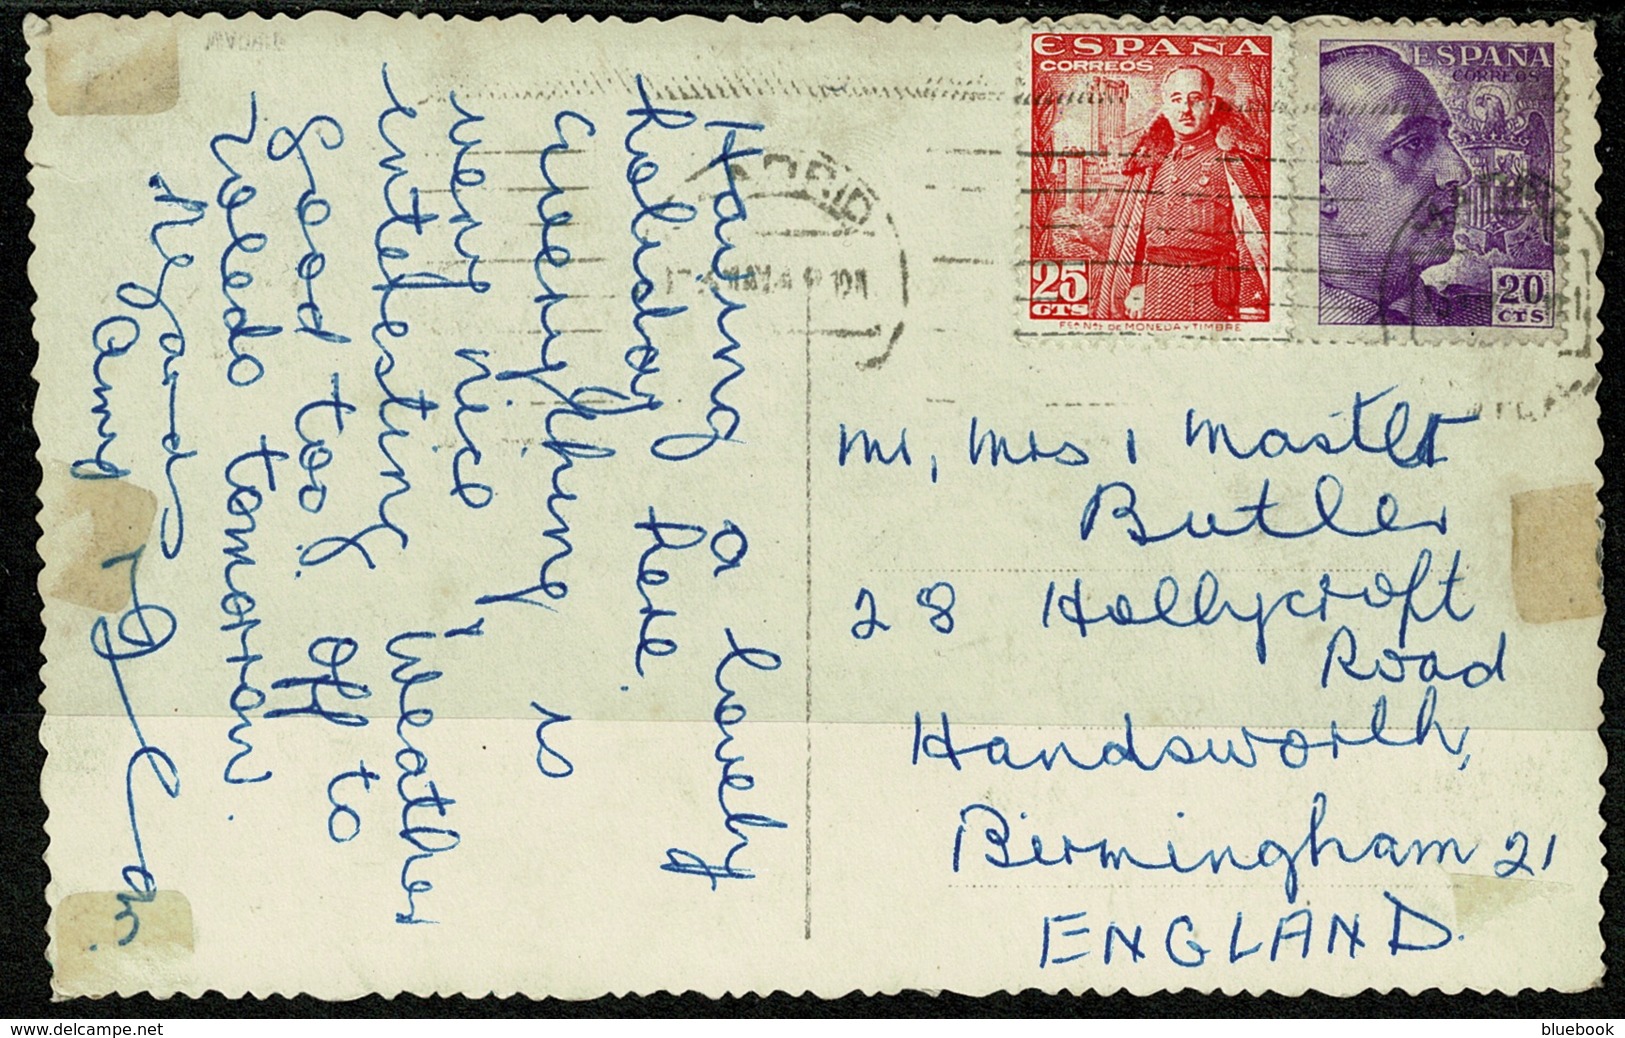 Having a lovely
holiday here.
Everything is
very nice &
interesting, Weather
good too. Off to
Toledo tomorrow.
Regards
Amy
ESPAÑA
CORREOS
25
CTS
ESPAÑA
CORREOS
20
CTS
MADRID
Mr, Mrs & Master
Butler
28 Hollycroft
Road
Handsworth,
Birmingham 21
ENGLAND.
www.delcampe.net
bluebook